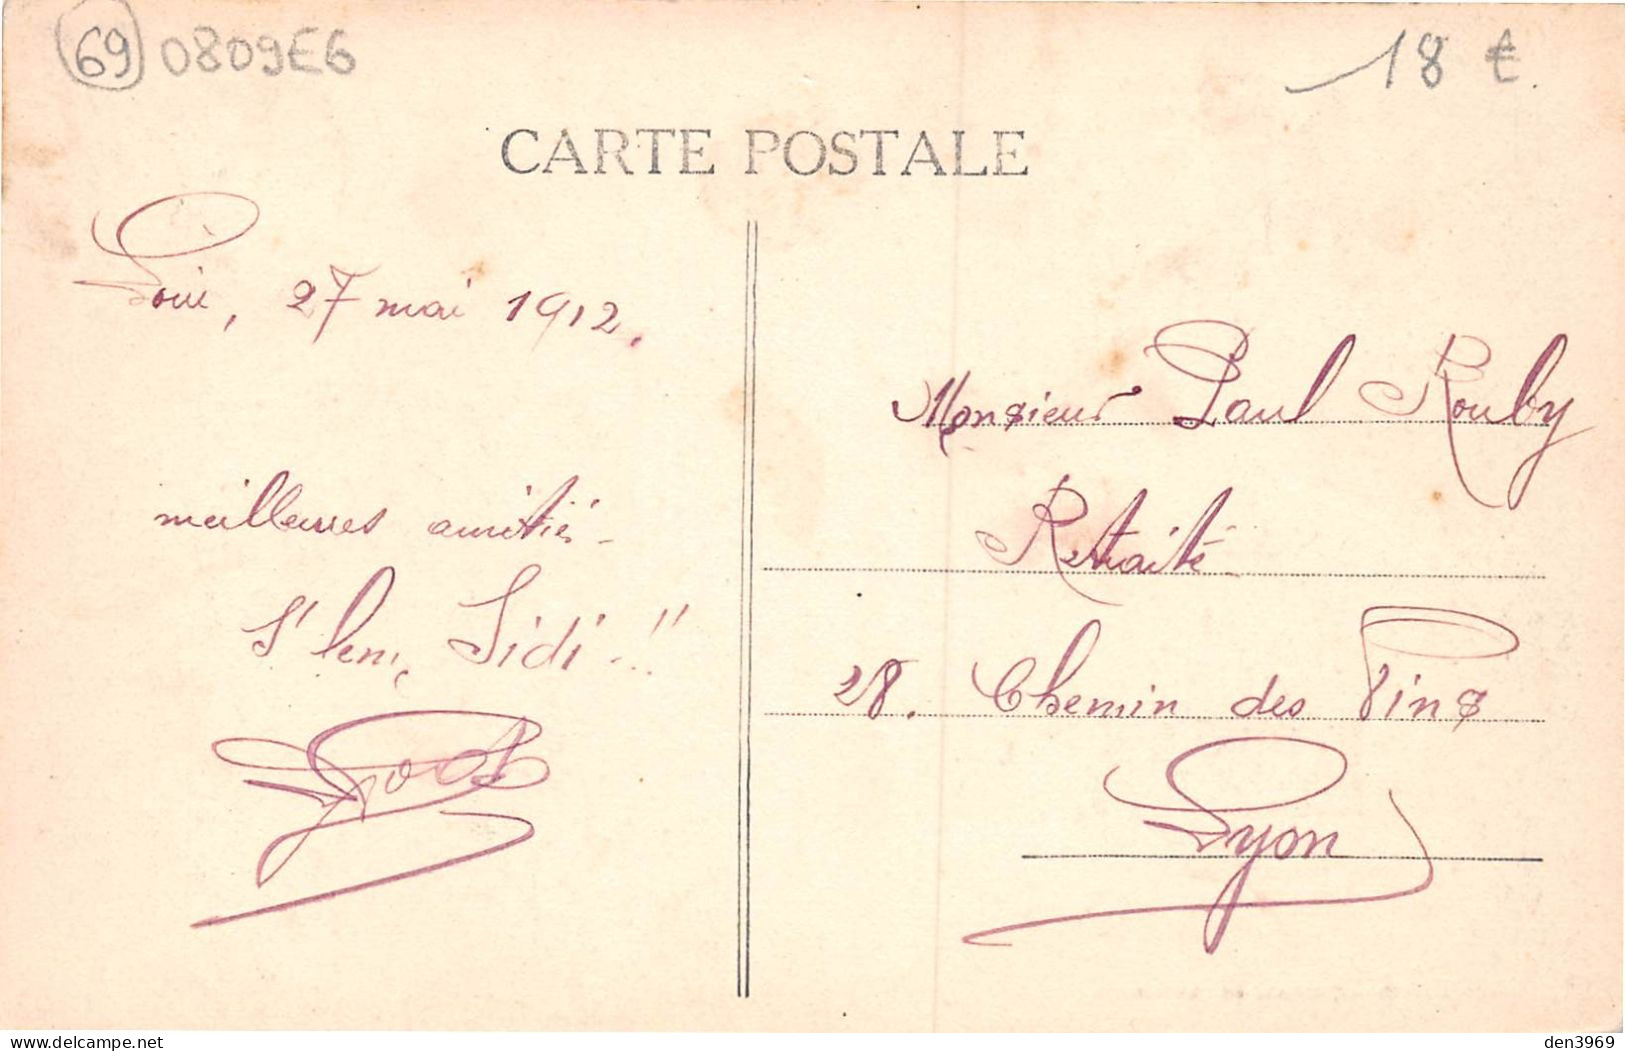 69 0809E6
18 €
CARTE POSTALE
27 mai 1912.
meilleures amitiés -
Sidi !!
Monsieur Paul Rouby
Retraité
28. Chemin des Pins
Lyon
www.delcampe.net
den3969